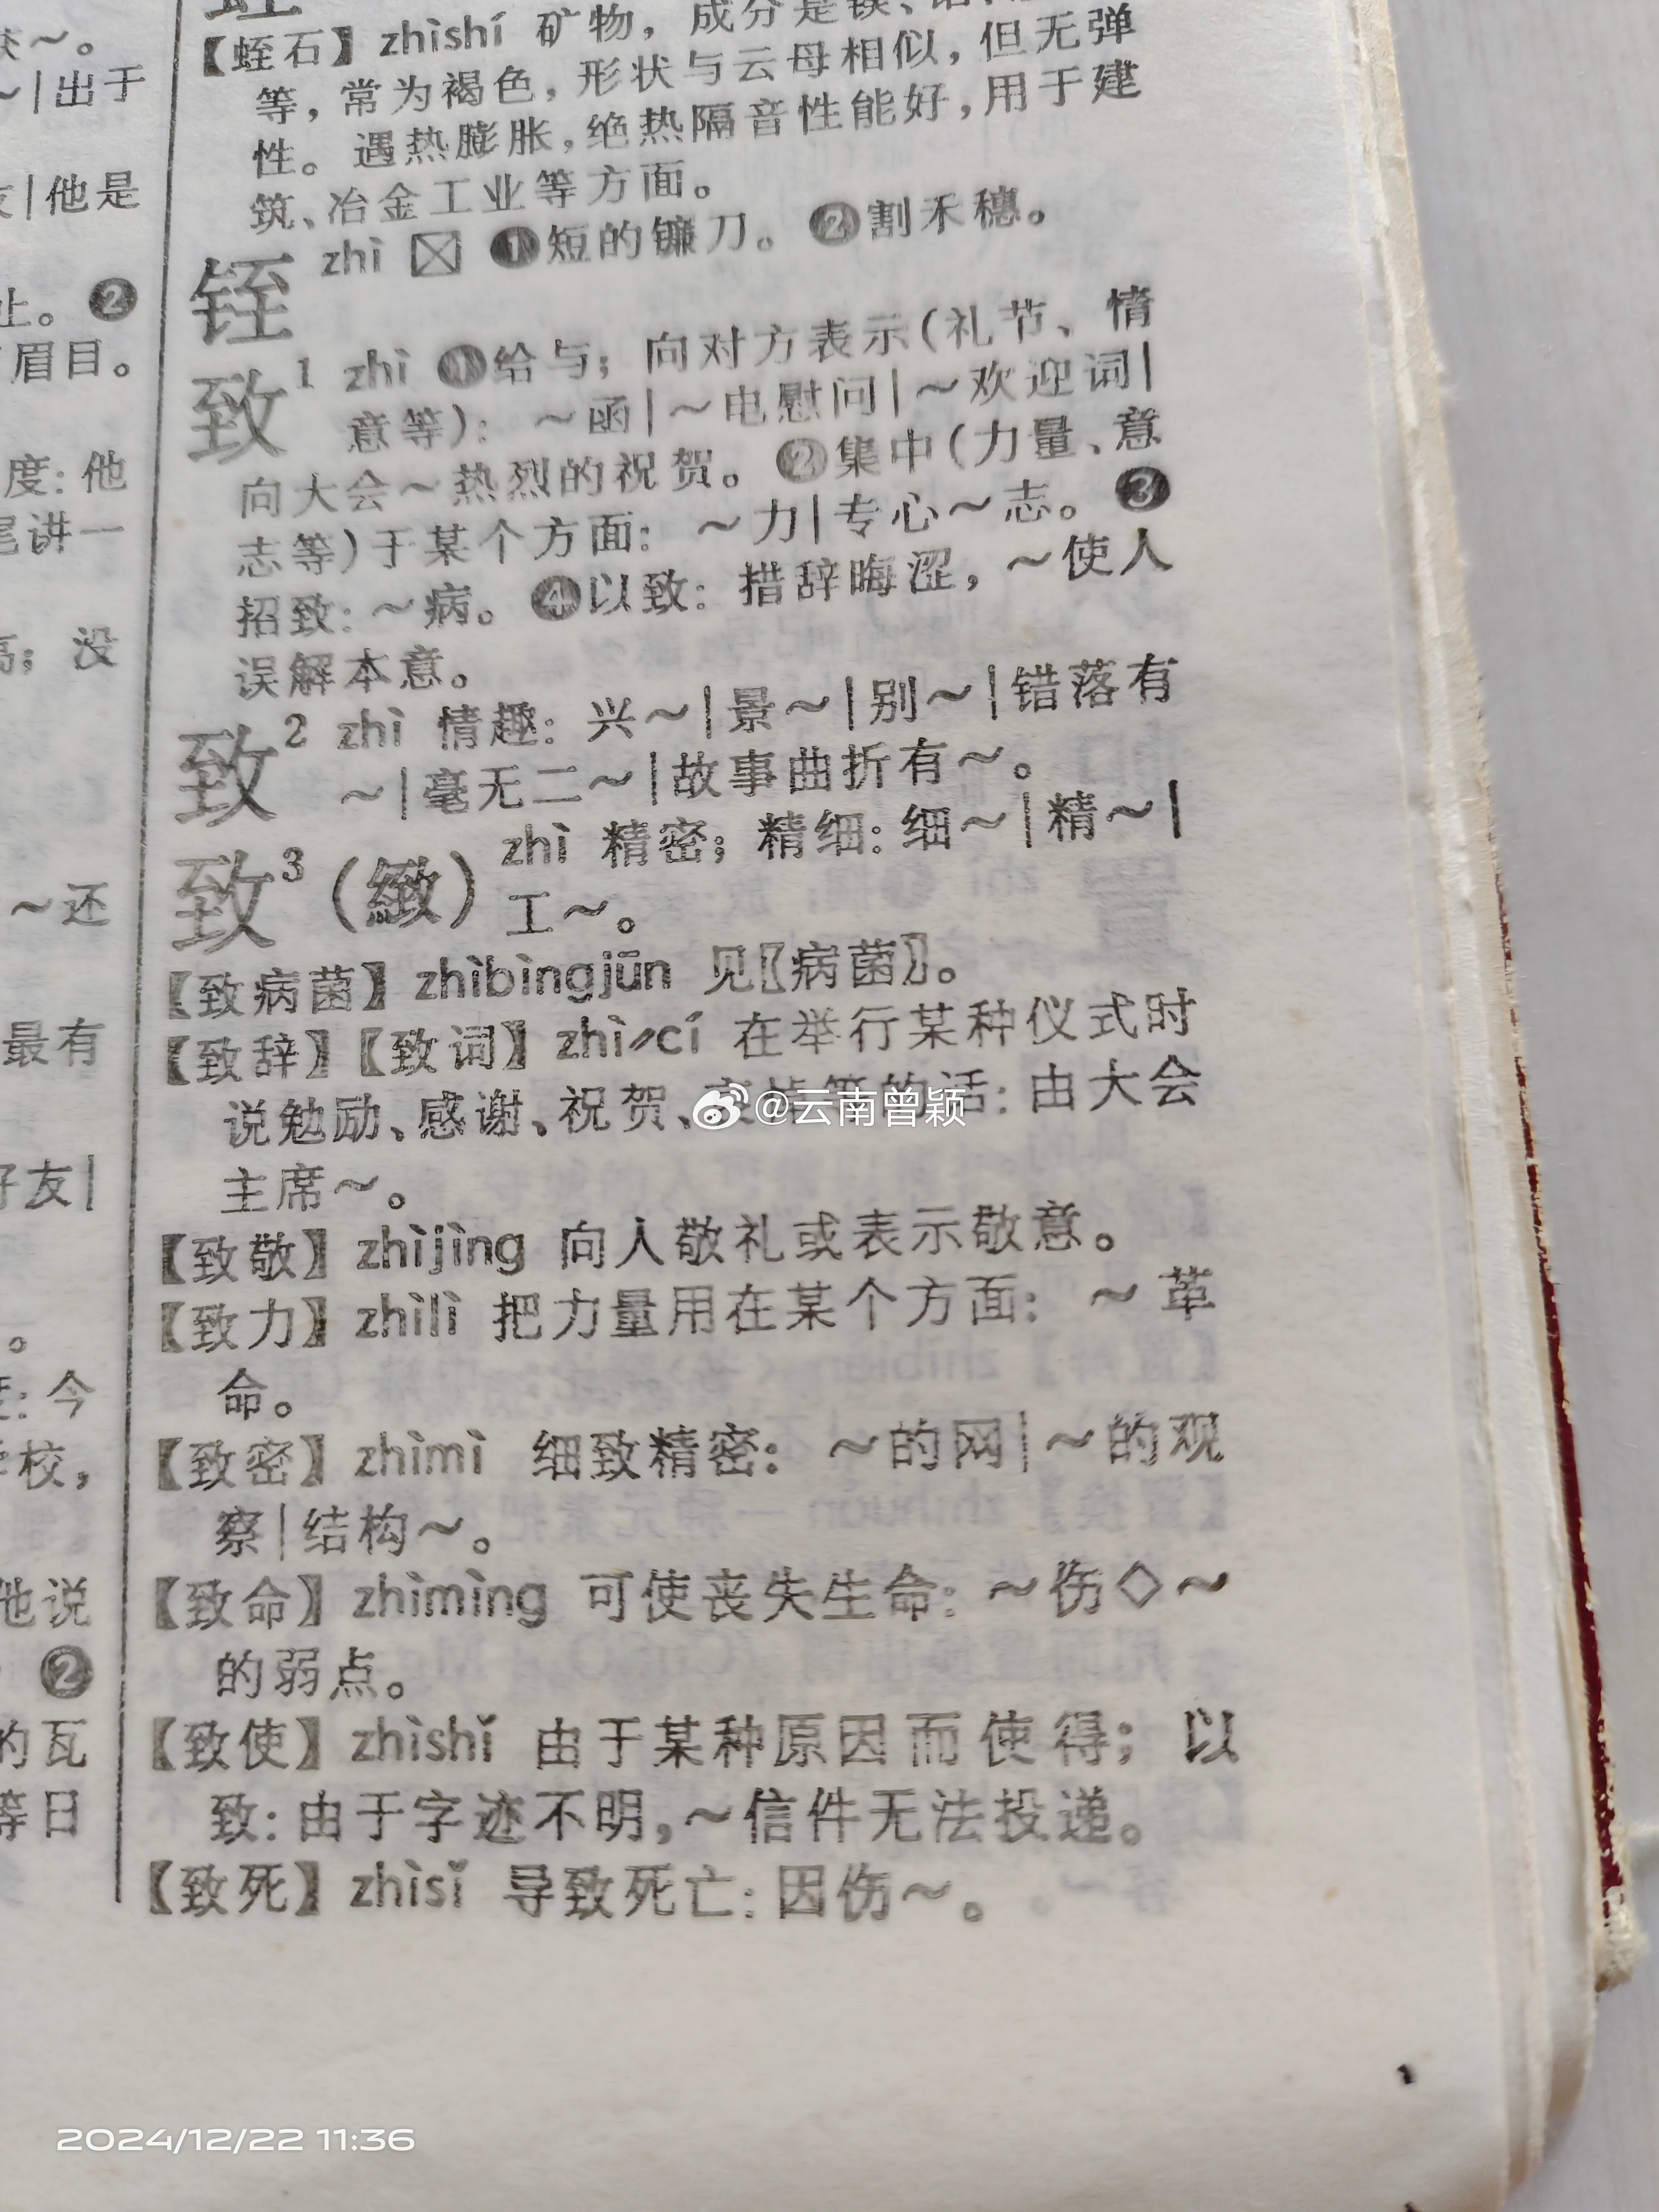 ～。
～|出于
|他是
止。❷
眉目。
度：他
尾讲一
；没
～还
最有
好友|
。
：今
校，
他说
❷
的瓦
等日
【蛭石】zhìshí 矿物，成分是铁、
等，常为褐色，形状与云母相似，但无弹
性。遇热膨胀，绝热隔音性能好，用于建
筑、冶金工业等方面。
铚 zhì ☒ ❶短的镰刀。❷割禾穗。
致1 zhì ❶给与；向对方表示（礼节、情
意等）：～函|～电慰问|～欢迎词|
向大会～热烈的祝贺。❷集中（力量、意
志等）于某个方面：～力|专心～志。❸
招致：～病。❹以致：措辞晦涩，～使人
误解本意。
致2 zhì 情趣：兴～|景～|别～|错落有
～|毫无二～|故事曲折有～。
致3（緻） zhì 精密；精细：细～|精～|
工～。
【致病菌】zhìbìngjūn 见〖病菌〗。
【致辞】【致词】zhì∥cí 在举行某种仪式时
说勉励、感谢、祝贺、的话：由大会
主席～。
【致敬】zhìjìng 向人敬礼或表示敬意。
【致力】zhìlì 把力量用在某个方面：～革
命。
【致密】zhìmì 细致精密：～的网|～的观
察|结构～。
【致命】zhìmìng 可使丧失生命：～伤◇～
的弱点。
【致使】zhìshǐ 由于某种原因而使得；以
致：由于字迹不明，～信件无法投递。
【致死】zhìsǐ 导致死亡：因伤～。
@云南曾颖
2024/12/22 11:36